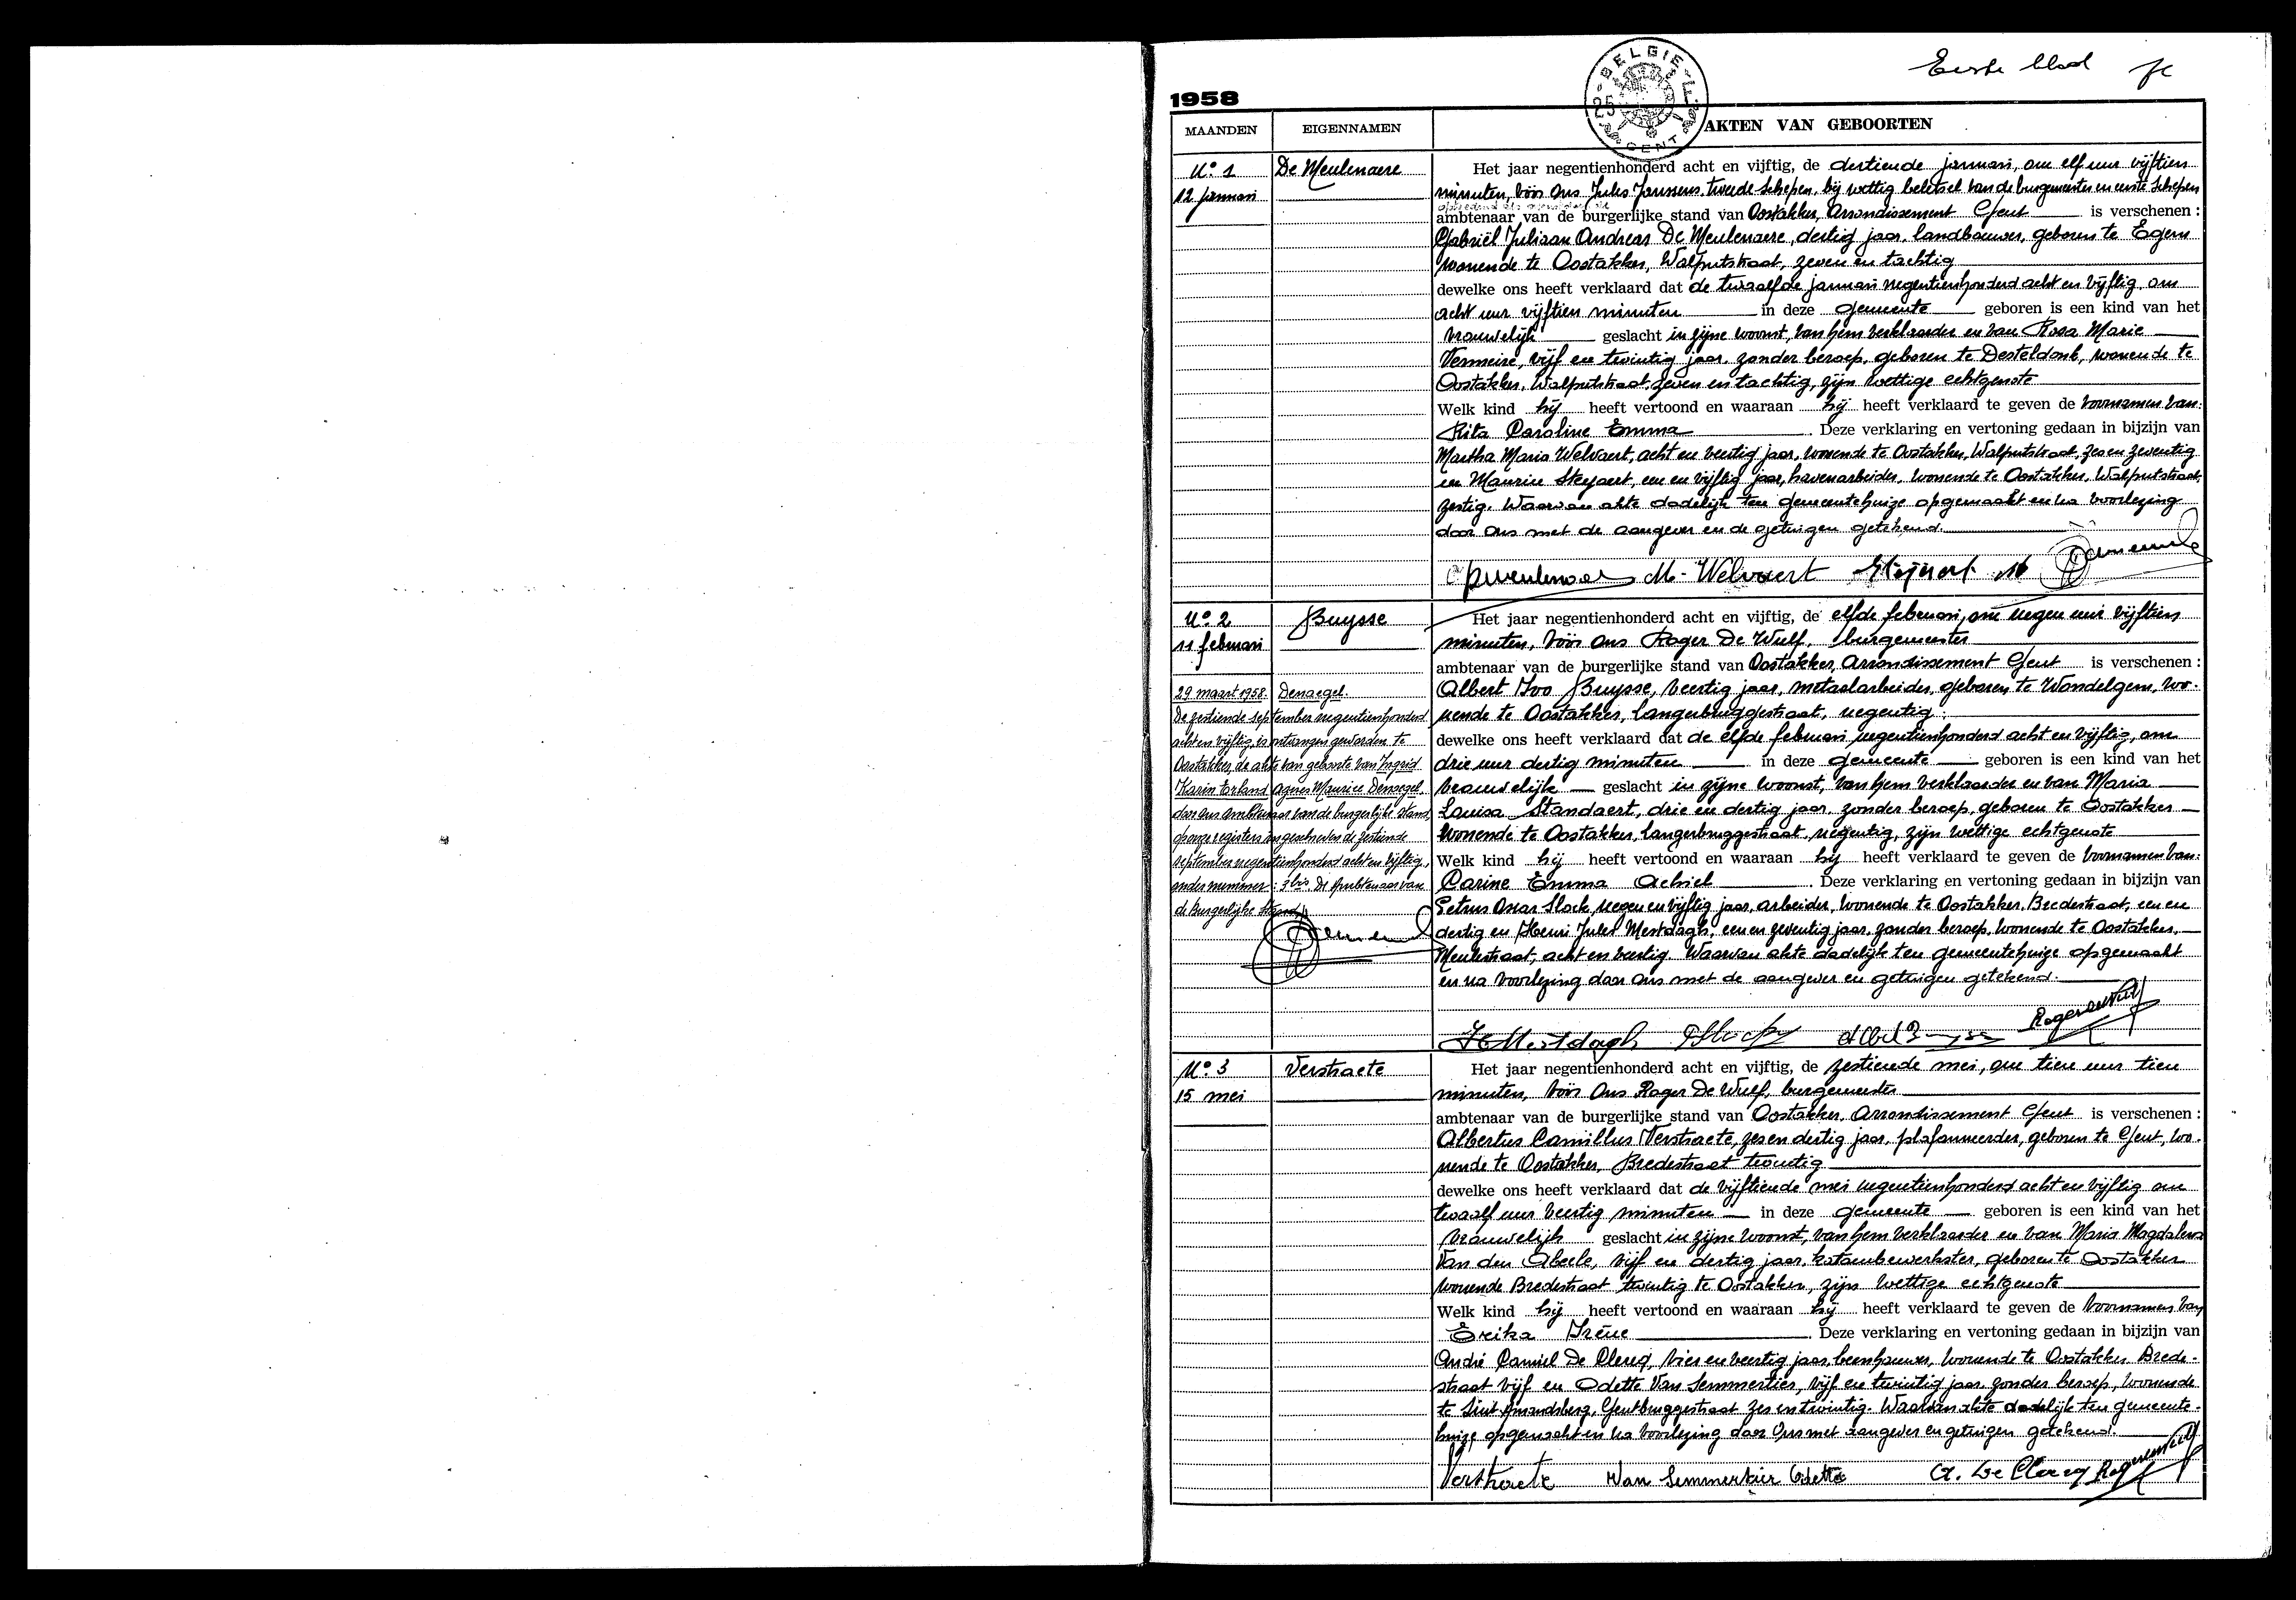 Eerste blad
1958
BELGIE
25
GENT
MAANDEN EIGENNAMEN AKTEN VAN GEBOORTEN
N° 1 De Meulenaere
12 januari
Het jaar negentienhonderd acht en vijftig, de dertiende januari, om elf uur vijftien
minuten, vóór Ons Jules Janssens, tweede schepen, bij wettig beletsel van de burgemeester en eerste schepen
ambtenaar van de burgerlijke stand van Oostakker, Arrondissement Gent is verschenen :
Gabriël Juliaan Andreas De Meulenaere, dertig jaar, landbouwer, geboren te Egem
wonende te Oostakker, Walputstraat, zeven en tachtig
dewelke ons heeft verklaard dat de twaalfde januari negentienhonderd acht en vijftig, om
acht uur vijftien minuten in deze gemeente geboren is een kind van het
vrouwelijk geslacht in zijne woonst, van hem verklaarder en van Rosa Marie
Vermeire, vijf en twintig jaar, zonder beroep, geboren te Desteldonk, wonende te
Oostakker, Walputstraat, zeven en tachtig, zijn wettige echtgenote
Welk kind hij heeft vertoond en waaraan hij heeft verklaard te geven de voornamen van:
Rita Caroline Emma . Deze verklaring en vertoning gedaan in bijzijn van
Martha Maria Welvaert, acht en veertig jaar, wonende te Oostakker, Walputstraat, zes en zeventig
en Maurice Steyaert, een en vijftig jaar, havenarbeider, wonende te Oostakker, Walputstraat,
zestig. Waarvan akte dadelijk ten gemeentehuize opgemaakt en na voorlezing
door Ons met de aangever en de getuigen getekend.
M. Welvaert Steyaert M
N° 2 Buysse
11 februari
Het jaar negentienhonderd acht en vijftig, de elfde februari, om negen uur vijftien
minuten, vóór Ons Roger De Wulf, burgemeester
ambtenaar van de burgerlijke stand van Oostakker, Arrondissement Gent is verschenen :
Albert Ivo Buysse, veertig jaar, metaalarbeider, geboren te Wondelgem, wo-
nende te Oostakker, Langerbruggestraat, negentig
dewelke ons heeft verklaard dat de elfde februari negentienhonderd acht en vijftig, om
drie uur dertig minuten in deze gemeente geboren is een kind van het
vrouwelijk geslacht in zijne woonst, van hem verklaarder en van Maria
Louisa Standaert, drie en dertig jaar, zonder beroep, geboren te Oostakker
wonende te Oostakker, Langerbruggestraat, negentig, zijn wettige echtgenote
Welk kind hij heeft vertoond en waaraan hij heeft verklaard te geven de voornamen van:
Carine Emma Achiel . Deze verklaring en vertoning gedaan in bijzijn van
Petrus Oscar Slock, negen en vijftig jaar, arbeider, wonende te Oostakker, Bredestraat, een en
dertig en Henri Jules Mestdagh, een en zeventig jaar, zonder beroep, wonende te Oostakker,
Meulestraat, acht en veertig. Waarvan akte dadelijk ten gemeentehuize opgemaakt
en na voorlezing door Ons met de aangever en getuigen getekend.
H Mestdagh P Slock Roger De Wulf
29 maart 1958. Denaegel.
De zestiende september negentienhonderd
acht en vijftig, is ontvangen geworden te
Oostakker, de akte van geboorte van Ingrid
Karin Agnes Maurice Denaegel,
door ons ambtenaar van de burgerlijke stand,
op onze registers ingeschreven de zestiende
september negentienhonderd acht en vijftig,
onder nummer : 3 bis De Ambtenaar van
de burgerlijke stand,
N° 3 Verstraete
15 mei
Het jaar negentienhonderd acht en vijftig, de zestiende mei, om tien uur tien
minuten, vóór Ons Roger De Wulf, burgemeester
ambtenaar van de burgerlijke stand van Oostakker, Arrondissement Gent is verschenen :
Albertus Camillus Verstraete, zes en dertig jaar, plafonneerder, geboren te Gent, wo-
nende te Oostakker, Bredestraat twintig
dewelke ons heeft verklaard dat de vijftiende mei negentienhonderd acht en vijftig om
twaalf uur veertig minuten in deze gemeente geboren is een kind van het
vrouwelijk geslacht in zijne woonst, van hem verklaarder en van Maria Magdalena
Van den Abeele, vijf en dertig jaar, katoenbewerkster, geboren te Oostakker
wonende Bredestraat twintig te Oostakker, zijn wettige echtgenote
Welk kind hij heeft vertoond en waaraan hij heeft verklaard te geven de voornamen van
Erika Irène . Deze verklaring en vertoning gedaan in bijzijn van
André Camiel De Clercq, vier en veertig jaar, beenhouwer, wonende te Oostakker Brede-
straat vijf en Odette Van Semmertier, vijf en twintig jaar, zonder beroep, wonende
te Sint Amandsberg, Gentbruggestraat zes en twintig. Waarvan akte dadelijk ten gemeente-
huize opgemaakt en na voorlezing door Ons met aangever en getuigen getekend.
Verstraete Van Semmertier Odette A. De Clercq Roger De Wulf